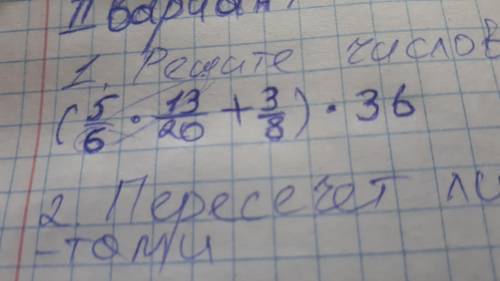 II вариант
1. Решите числов
(5/6 · 13/20 + 3/8) · 36
2. Пересечет ли
-тами